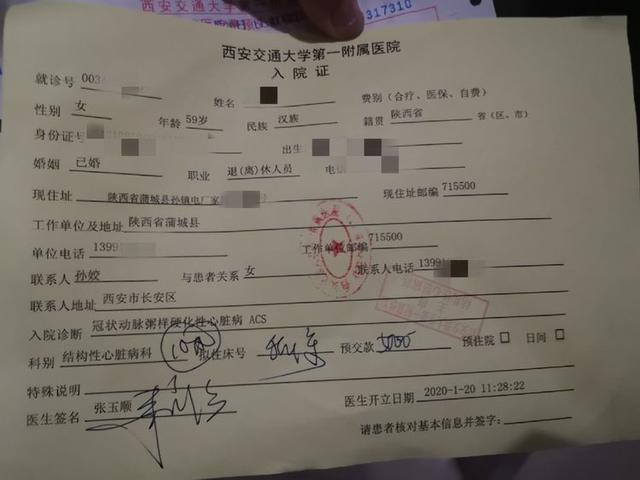 317310
西安交通大学第一附属医院
入院证
就诊号 003 姓名 费别（合疗、医保、自费）
性别 女 年龄 59岁 民族 汉族 籍贯 陕西省 省（区、市）
身份证号 出生
婚姻 已婚 职业 退(离)休人员 电话
现住址 陕西省蒲城县孙镇电厂家 现住址邮编 715500
工作单位及地址 陕西省蒲城县
单位电话 1399 工作单位邮编 715500
联系人 孙姣 与患者关系 女 联系人电话 1399
联系人地址 西安市长安区
入院诊断 冠状动脉粥样硬化性心脏病 ACS
科别 结构性心脏病科 拟住床号 预交款 预住院 □ 日间 □
特殊说明
医生签名 张玉顺 医生开立日期 2020-1-20 11:28:22
请患者核对基本信息并签字: